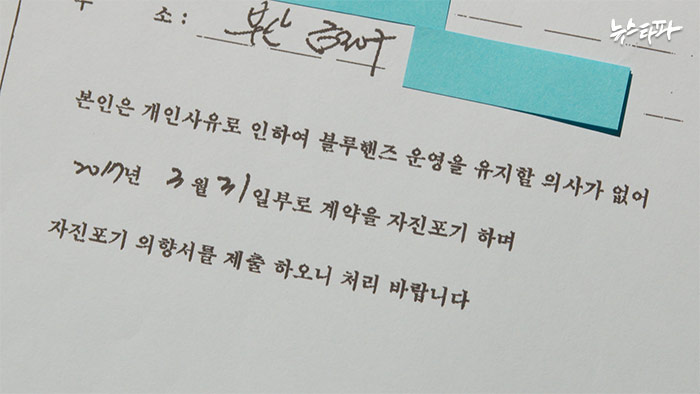 뉴스타파
주 소: 부산 금정구
본인은 개인사유로 인하여 블루핸즈 운영을 유지할 의사가 없어
2017년 3월 31일부로 계약을 자진포기 하며
자진포기 의향서를 제출 하오니 처리 바랍니다